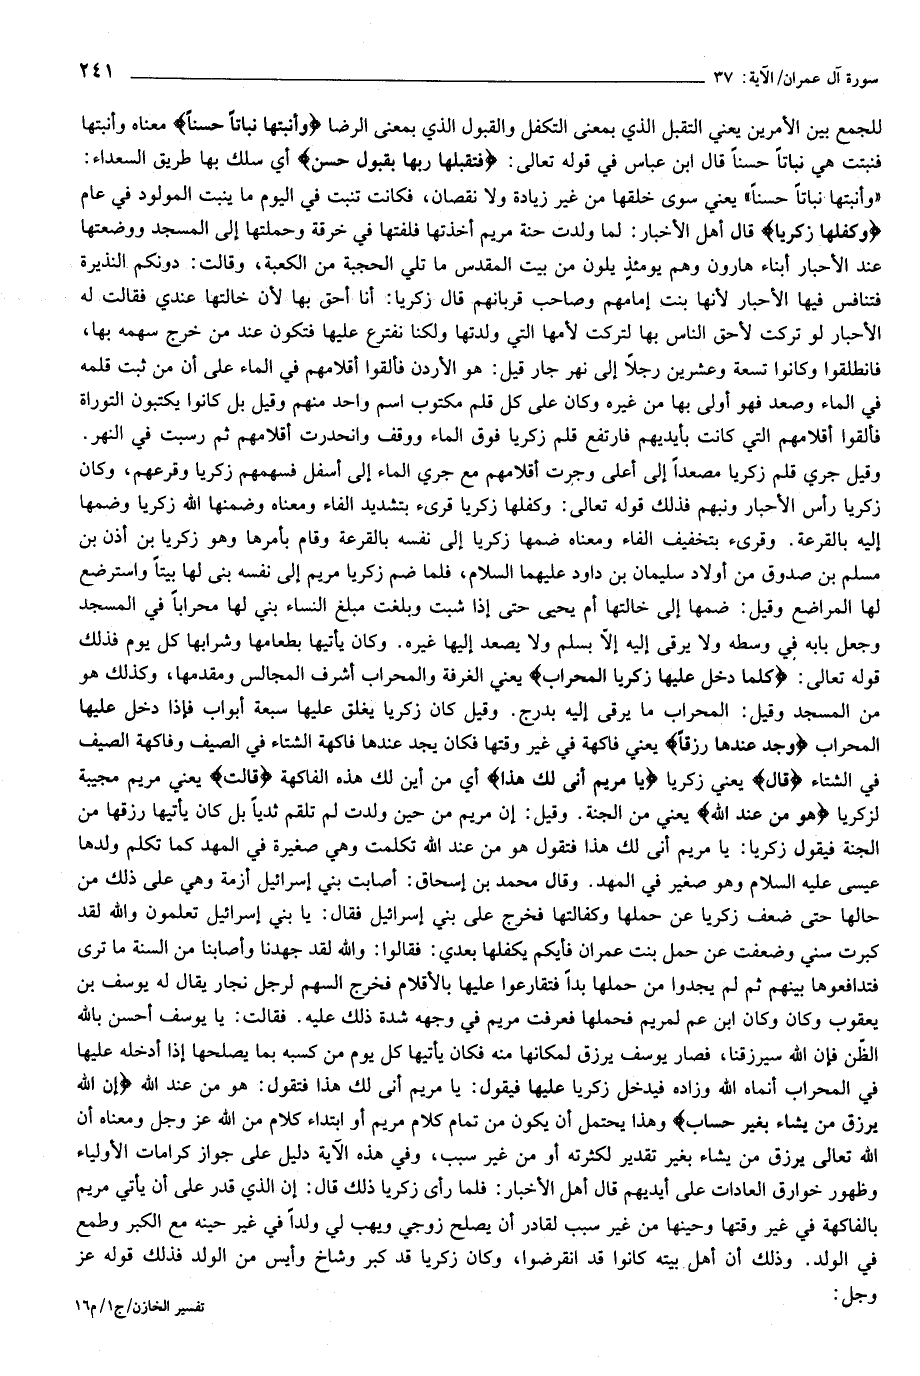 سورة آل عمران/ الآية: ٣٧ ٢٤١
للجمع بين الأمرين يعني التقبل الذي بمعنى التكفل والقبول الذي بمعنى الرضا ﴿وأنبتها نباتاً حسناً﴾ معناه وأنبتها
فنبتت هي نباتاً حسناً قال ابن عباس في قوله تعالى: ﴿فتقبلها ربها بقبول حسن﴾ أي سلك بها طريق السعداء:
«وأنبتها نباتاً حسناً» يعني سوى خلقها من غير زيادة ولا نقصان، فكانت تنبت في اليوم ما ينبت المولود في عام
﴿وكفلها زكريا﴾ قال أهل الأخبار: لما ولدت حنة مريم أخذتها فلفتها في خرقة وحملتها إلى المسجد ووضعتها
عند الأحبار أبناء هارون وهم يومئذٍ يلون من بيت المقدس ما تلي الحجبة من الكعبة، وقالت: دونكم النذيرة
فتنافس فيها الأحبار لأنها بنت إمامهم وصاحب قربانهم قال زكريا: أنا أحق بها لأن خالتها عندي فقالت له
الأحبار لو تركت لأحق الناس بها لتركت لأمها التي ولدتها ولكنا نقترع عليها فتكون عند من خرج سهمه بها،
فانطلقوا وكانوا تسعة وعشرين رجلاً إلى نهر جار قيل: هو الأردن فألقوا أقلامهم في الماء على أن من ثبت قلمه
في الماء وصعد فهو أولى بها من غيره وكان على كل قلم مكتوب اسم واحد منهم وقيل بل كانوا يكتبون التوراة
فألقوا أقلامهم التي كانت بأيديهم فارتفع قلم زكريا فوق الماء ووقف وانحدرت أقلامهم ثم رسبت في النهر.
وقيل جري قلم زكريا مصعداً إلى أعلى وجرت أقلامهم مع جري الماء إلى أسفل فسهمهم زكريا وقرعهم، وكان
زكريا رأس الأحبار ونبهم فذلك قوله تعالى: وكفلها زكريا قرىء بتشديد الفاء ومعناه وضمنها الله زكريا وضمها
إليه بالقرعة. وقرىء بتخفيف الفاء ومعناه ضمها زكريا إلى نفسه بالقرعة وقام بأمرها وهو زكريا بن أذن بن
مسلم بن صدوق من أولاد سليمان بن داود عليهما السلام، فلما ضم زكريا مريم إلى نفسه بنى لها بيتاً واسترضع
لها المراضع وقيل: ضمها إلى خالتها أم يحيى حتى إذا شبت وبلغت مبلغ النساء بني لها محراباً في المسجد
وجعل بابه في وسطه ولا يرقى إليه إلاّ بسلم ولا يصعد إليها غيره. وكان يأتيها بطعامها وشرابها كل يوم فذلك
قوله تعالى: ﴿كلما دخل عليها زكريا المحراب﴾ يعني الغرفة والمحراب أشرف المجالس ومقدمها، وكذلك هو
من المسجد وقيل: المحراب ما يرقى إليه بدرج. وقيل كان زكريا يغلق عليها سبعة أبواب فإذا دخل عليها
المحراب ﴿وجد عندها رزقاً﴾ يعني فاكهة في غير وقتها فكان يجد عندها فاكهة الشتاء في الصيف وفاكهة الصيف
في الشتاء ﴿قال﴾ يعني زكريا ﴿يا مريم أنى لك هذا﴾ أي من أين لك هذه الفاكهة ﴿قالت﴾ يعني مريم مجيبة
لزكريا ﴿هو من عند الله﴾ يعني من الجنة. وقيل: إن مريم من حين ولدت لم تلقم ثدياً بل كان يأتيها رزقها من
الجنة فيقول زكريا: يا مريم أنى لك هذا فتقول هو من عند الله تكلمت وهي صغيرة في المهد كما تكلم ولدها
عيسى عليه السلام وهو صغير في المهد. وقال محمد بن إسحاق: أصابت بني إسرائيل أزمة وهي على ذلك من
حالها حتى ضعف زكريا عن حملها وكفالتها فخرج على بني إسرائيل فقال: يا بني إسرائيل تعلمون والله لقد
كبرت سني وضعفت عن حمل بنت عمران فأيكم يكفلها بعدي: فقالوا: والله لقد جهدنا وأصابنا من السنة ما ترى
فتدافعوها بينهم ثم لم يجدوا من حملها بداً فتقارعوا عليها بالأقلام فخرج السهم لرجل نجار يقال له يوسف بن
يعقوب وكان وكان ابن عم لمريم فحملها فعرفت مريم في وجهه شدة ذلك عليه. فقالت: يا يوسف أحسن بالله
الظّن فإن الله سيرزقنا، فصار يوسف يرزق لمكانها منه فكان يأتيها كل يوم من كسبه بما يصلحها إذا أدخله عليها
في المحراب أنماه الله وزاده فيدخل زكريا عليها فيقول: يا مريم أنى لك هذا فتقول: هو من عند الله ﴿إن الله
يرزق من يشاء بغير حساب﴾ وهذا يحتمل أن يكون من تمام كلام مريم أو ابتداء كلام من الله عز وجل ومعناه أن
الله تعالى يرزق من يشاء بغير تقدير لكثرته أو من غير سبب، وفي هذه الآية دليل على جواز كرامات الأولياء
وظهور خوارق العادات على أيديهم قال أهل الأخبار: فلما رأى زكريا ذلك قال: إن الذي قدر على أن يأتي مريم
بالفاكهة في غير وقتها وحينها من غير سبب لقادر أن يصلح زوجي ويهب لي ولداً في غير حينه مع الكبر وطمع
في الولد. وذلك أن أهل بيته كانوا قد انقرضوا، وكان زكريا قد كبر وشاخ وأيس من الولد فذلك قوله عز
وجل:
تفسير الخازن/ج١/م١٦